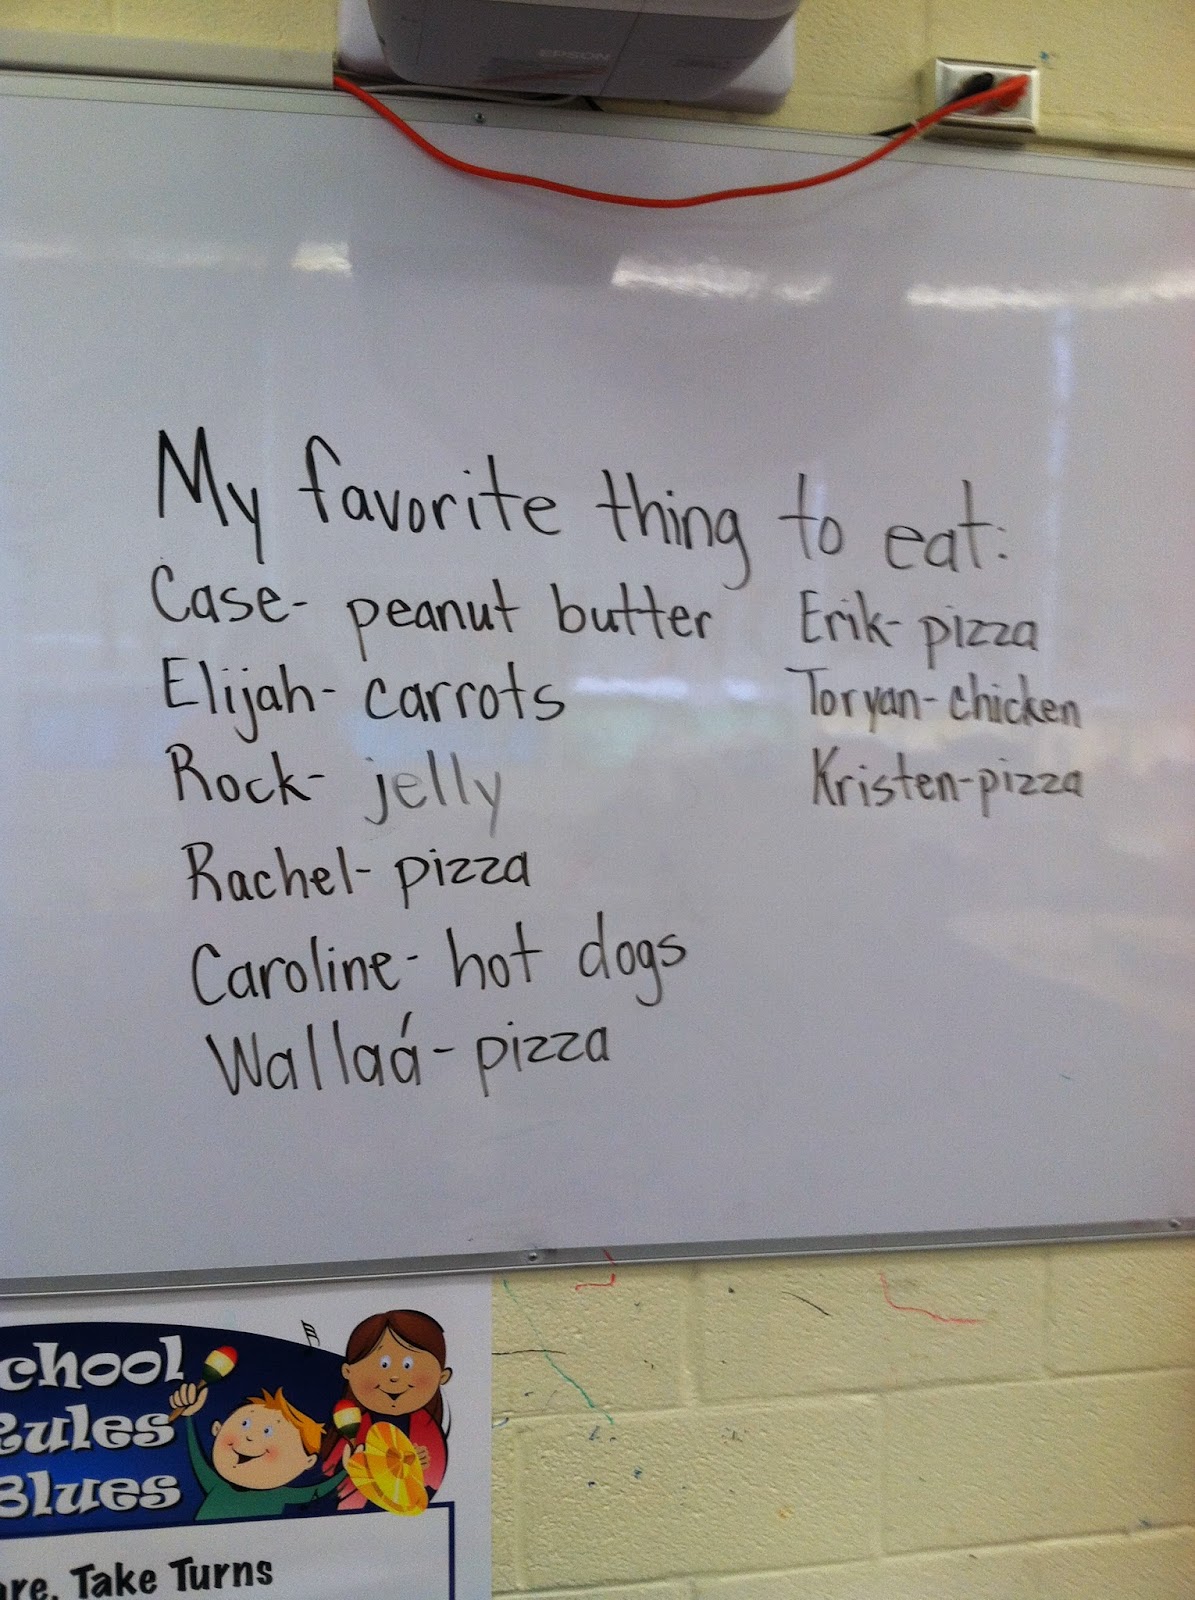 EPSON
My favorite thing to eat:
Case- peanut butter
Elijah- carrots
Rock- jelly
Rachel- pizza
Caroline- hot dogs
Wallaá- pizza
Erik- pizza
Toryan- chicken
Kristen- pizza
chool
Rules
Blues
are, Take Turns